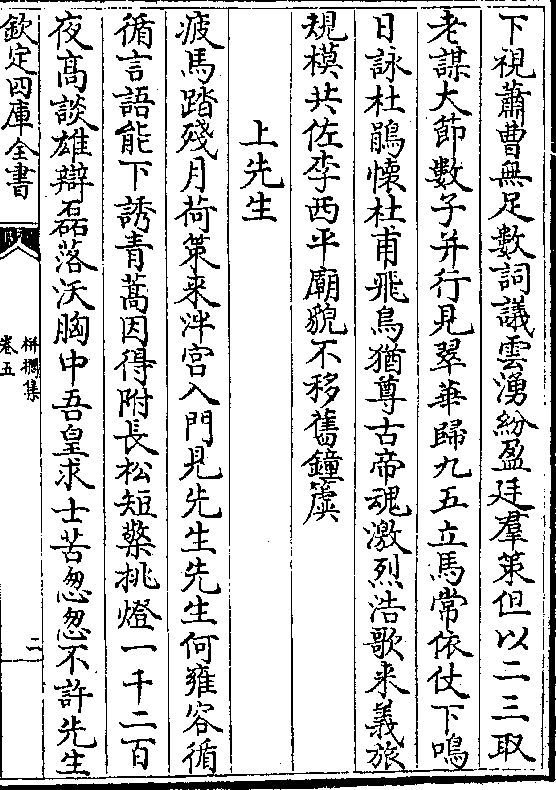 下視蕭曹無足數詞議雲湧紛盈廷羣策但以二三取
老謀大節數子并行見翠華歸九五立馬常依仗下鳴
日詠杜鵑懷杜甫飛鳥猶尊古帝魂激烈浩歌来義旅
規模共佐李西平廟貌不移舊鐘簴
上先生
疲馬踏殘月荷策来泮宫入門見先生先生何雍容循
循言語能下誘青蒿因得附長松短檠挑燈一千二百
夜高談雄辯磊落沃胸中吾皇求士苦怱怱不許先生
欽定四庫全書
栟櫚集
卷五
二